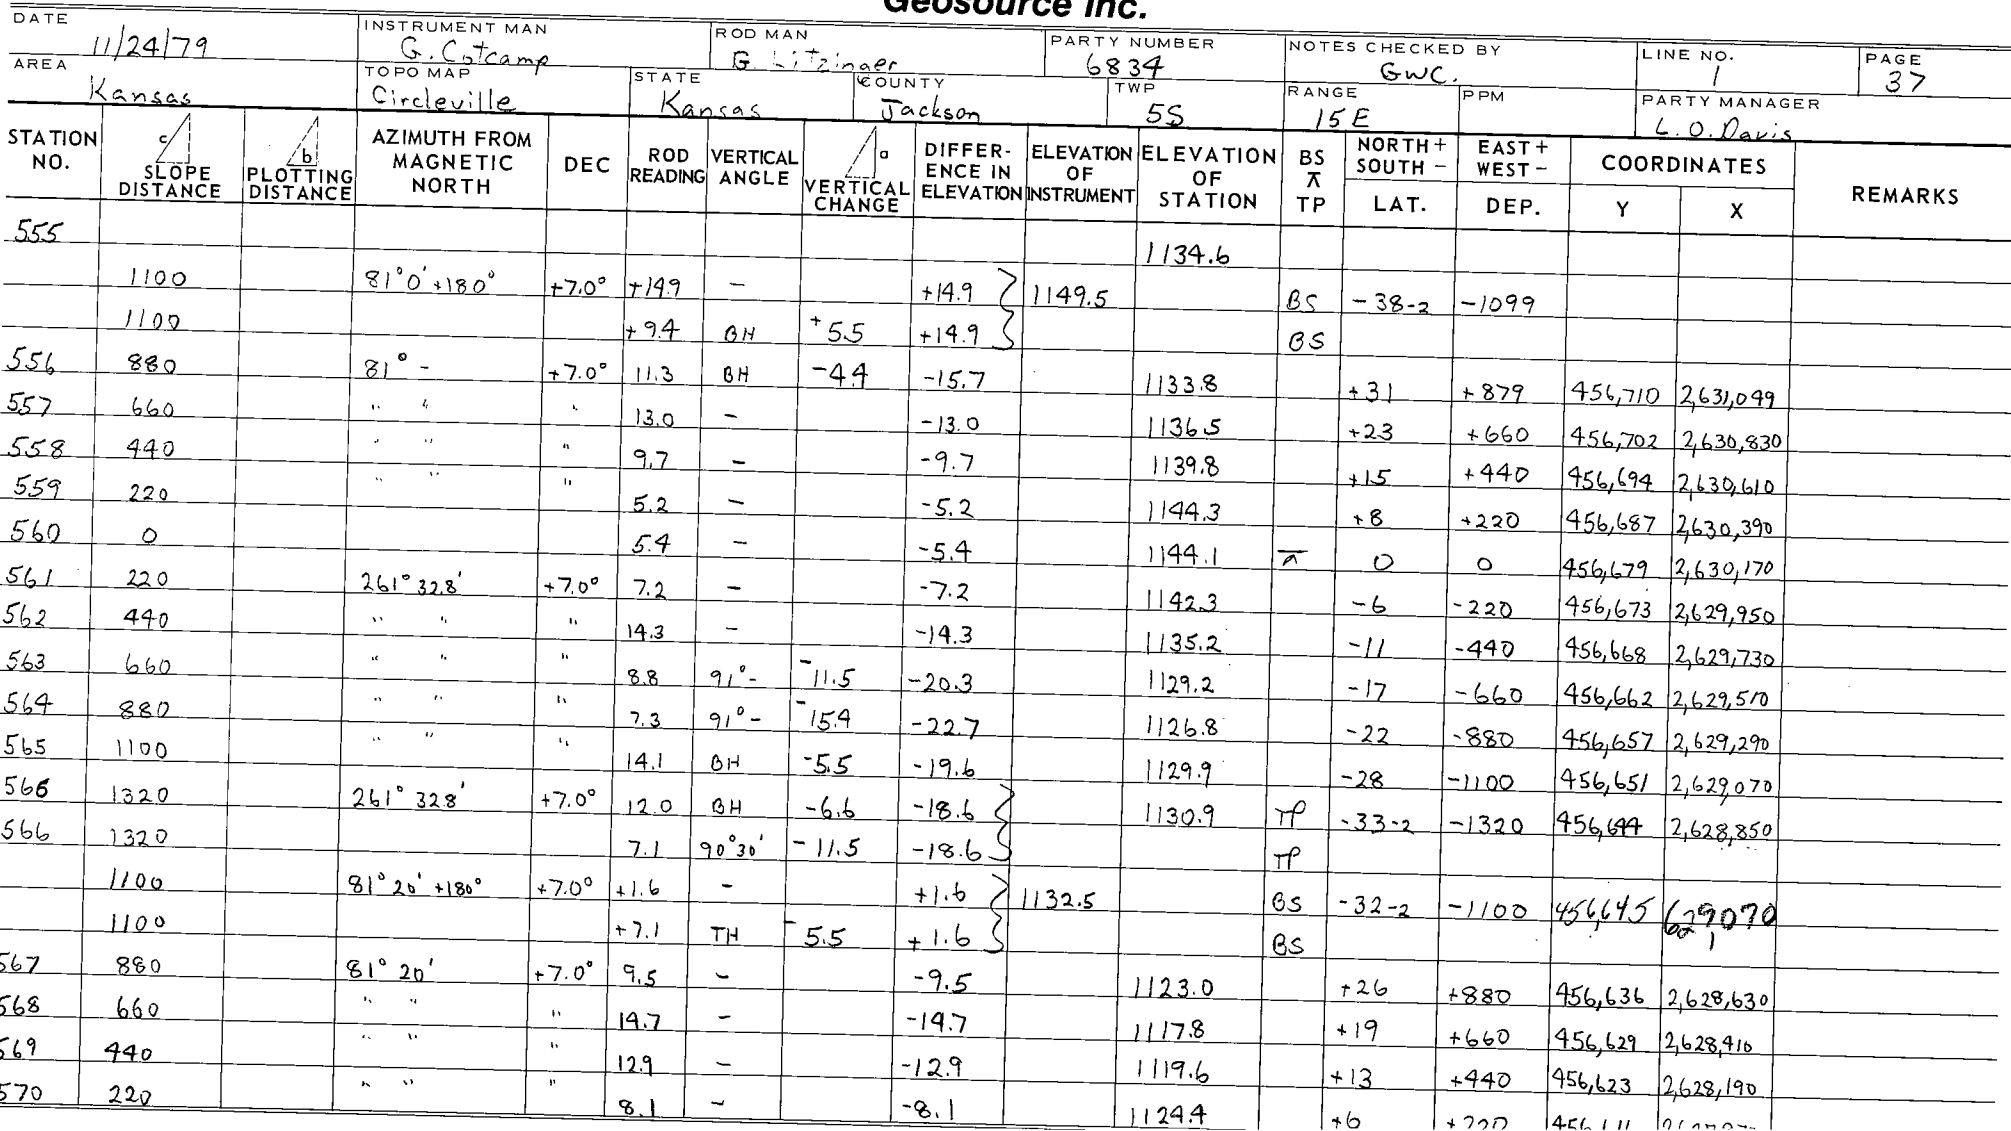 Geosource Inc.
DATE 11/24/79 INSTRUMENT MAN G. Cotcamp ROD MAN G. Litzinger PARTY NUMBER 6834 NOTES CHECKED BY GWC. LINE NO. 1 PAGE 37
AREA Kansas TOPO MAP Circleville STATE Kansas COUNTY Jackson TWP 5S RANGE 15E PPM PARTY MANAGER L.O. Davis
STATION NO. c SLOPE DISTANCE b PLOTTING DISTANCE AZIMUTH FROM MAGNETIC NORTH DEC ROD READING VERTICAL ANGLE a VERTICAL CHANGE DIFFERENCE IN ELEVATION ELEVATION OF INSTRUMENT ELEVATION OF STATION BS ⊼ TP NORTH + SOUTH - LAT. EAST + WEST - DEP. COORDINATES Y X REMARKS
555 1134.6
1100 81°0' +180° +7.0° +14.9 - +14.9 1149.5 BS -38-2 -1099
1100 +9.4 BH +5.5 +14.9 BS
556 880 81° - +7.0° 11.3 BH -4.4 -15.7 1133.8 +31 +879 456,710 2,631,049
557 660 " " " 13.0 - -13.0 1136.5 +23 +660 456,702 2,630,830
558 440 " " " 9.7 - -9.7 1139.8 +15 +440 456,694 2,630,610
559 220 " " " 5.2 - -5.2 1144.3 +8 +220 456,687 2,630,390
560 0 5.4 - -5.4 1144.1 ⊼ 0 0 456,679 2,630,170
561 220 261° 328' +7.0° 7.2 - -7.2 1142.3 -6 -220 456,673 2,629,950
562 440 " " " 14.3 - -14.3 1135.2 -11 -440 456,668 2,629,730
563 660 " " " 8.8 91°- -11.5 -20.3 1129.2 -17 -660 456,662 2,629,510
564 880 " " " 7.3 91°- -15.4 -22.7 1126.8 -22 -880 456,657 2,629,290
565 1100 " " " 14.1 BH -5.5 -19.6 1129.9 -28 -1100 456,651 2,629,070
566 1320 261° 328' +7.0° 12.0 BH -6.6 -18.6 1130.9 TP -33-2 -1320 456,644 2,628,850
566 1320 7.1 90°30' -11.5 -18.6 TP
1100 81°20' +180° +7.0° +1.6 - +1.6 1132.5 BS -32-2 -1100 456,645 629070
1100 +7.1 TH -5.5 +1.6 BS
567 880 81° 20' +7.0° 9.5 - -9.5 1123.0 +26 +880 456,636 2,628,630
568 660 " " " 14.7 - -14.7 1117.8 +19 +660 456,629 2,628,410
569 440 " " " 12.9 - -12.9 1119.6 +13 +440 456,623 2,628,190
570 220 " " " 8.1 - -8.1 1124.4 +6 +220